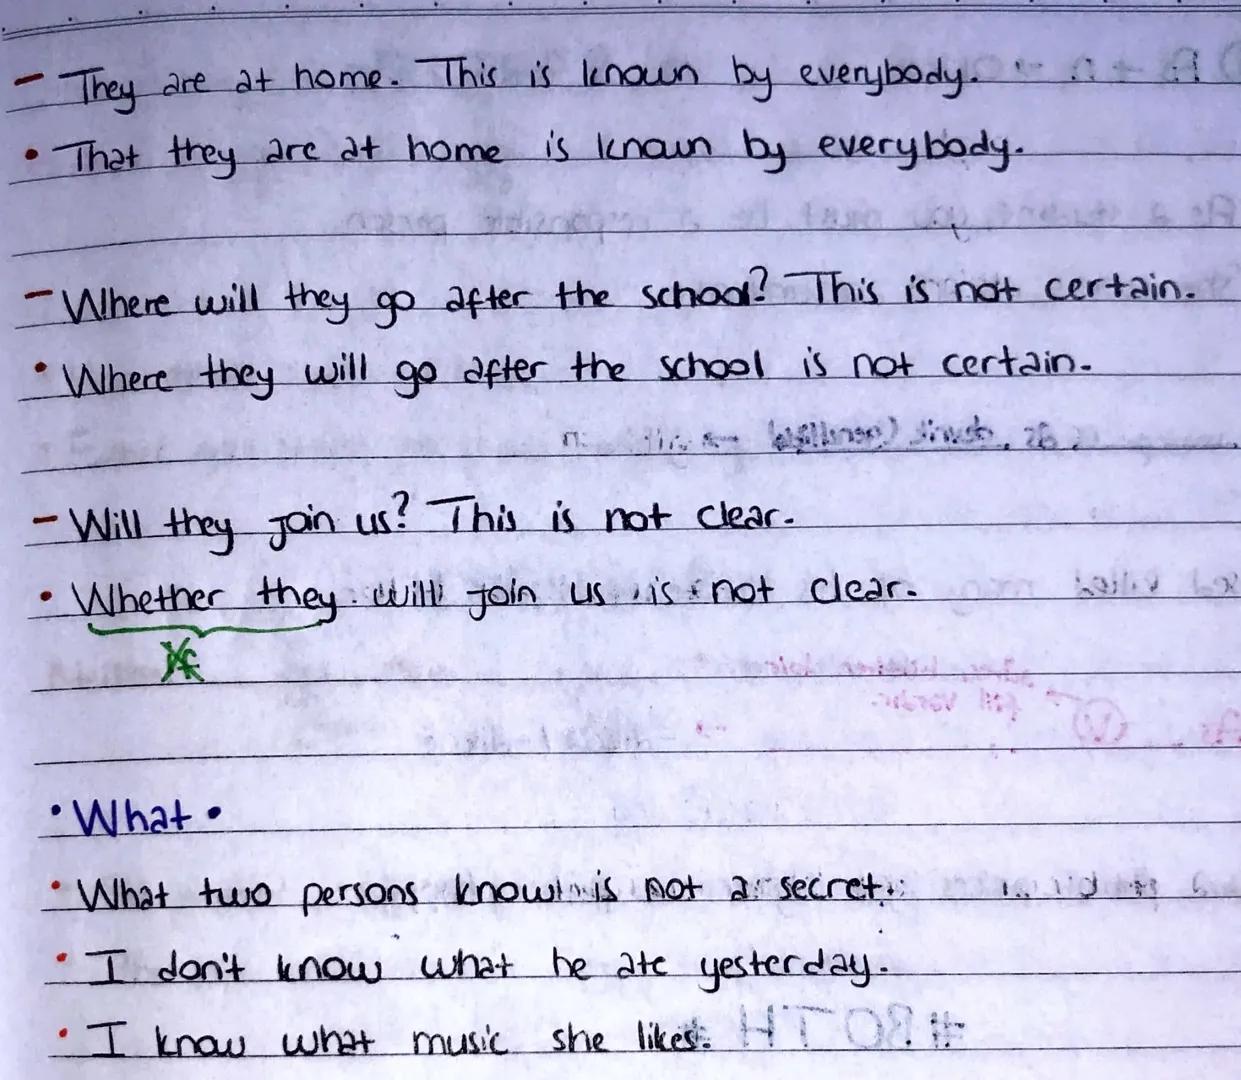 - They are at home. This is known by everybody.
• That they are at home is known by everybody.
- Where will they go after the school? This is not certain.
• Where they will go after the school is not certain.
- Will they join us? This is not clear.
• Whether they will join us is not clear.
• What •
• What two persons know is not a secret.
• I don't know what he ate yesterday.
• I know what music she likes.